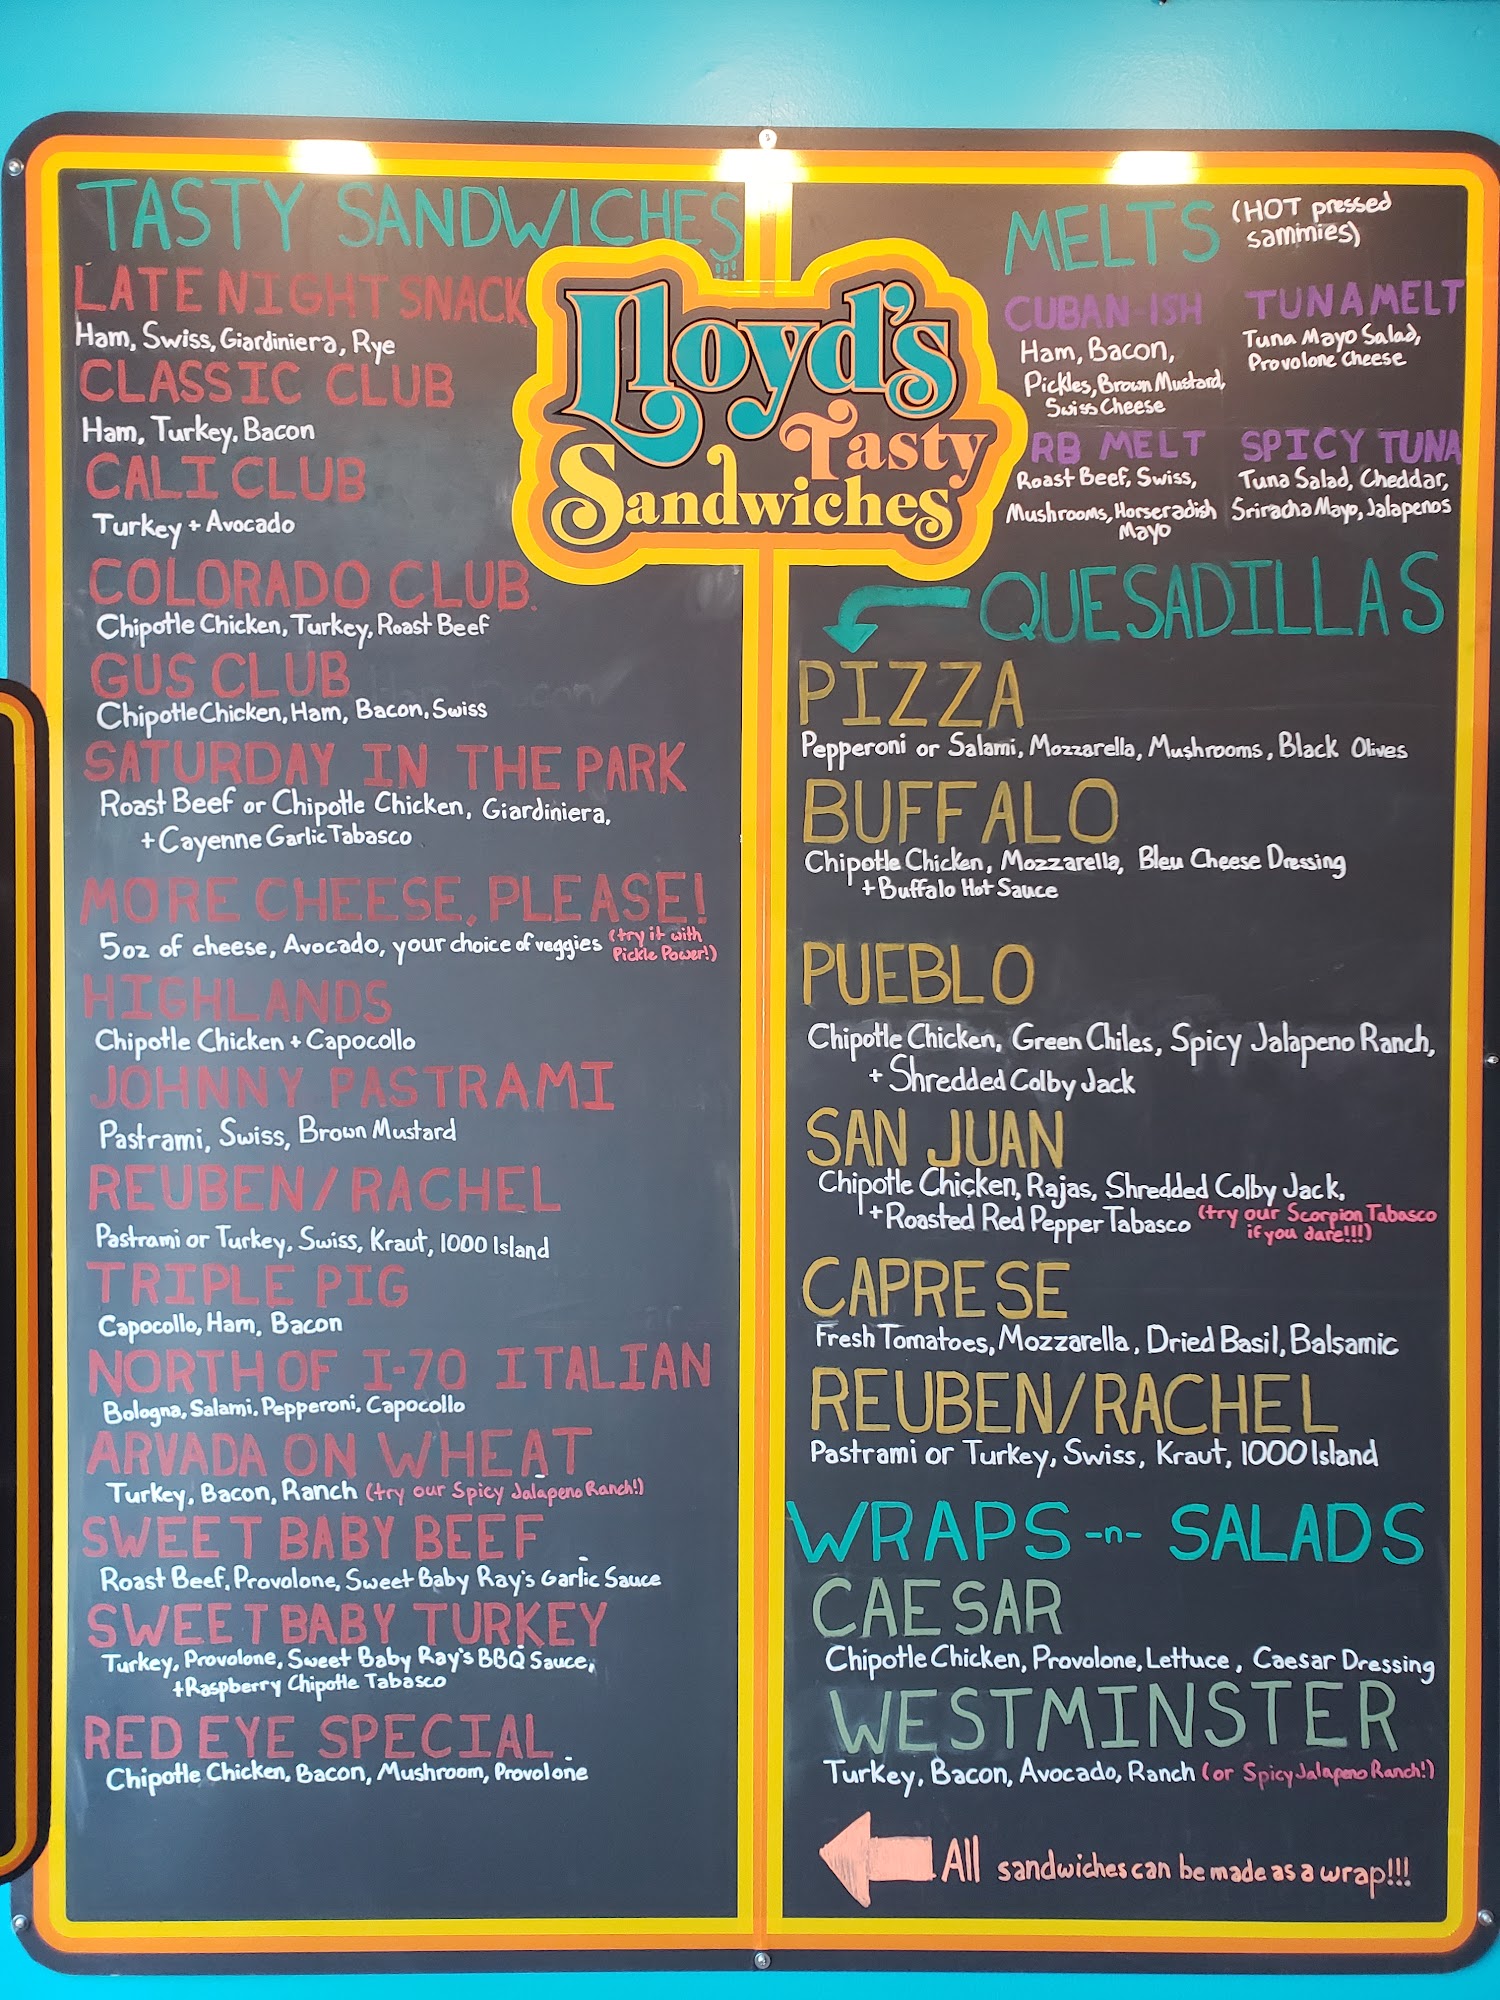 TASTY SANDWICHES!!!
LATE NIGHT SNACK
Ham, Swiss, Giardiniera, Rye
CLASSIC CLUB
Ham, Turkey, Bacon
CALI CLUB
Turkey + Avocado
COLORADO CLUB
Chipotle Chicken, Turkey, Roast Beef
GUS CLUB
Chipotle Chicken, Ham, Bacon, Swiss
SATURDAY IN THE PARK
Roast Beef or Chipotle Chicken, Giardiniera,
+ Cayenne Garlic Tabasco
MORE CHEESE, PLEASE!
5oz of cheese, Avocado, your choice of veggies (try it with
Pickle Power!)
HIGHLANDS
Chipotle Chicken + Capocollo
JOHNNY PASTRAMI
Pastrami, Swiss, Brown Mustard
REUBEN/RACHEL
Pastrami or Turkey, Swiss, Kraut, 1000 Island
TRIPLE PIG
Capocollo, Ham, Bacon
NORTH OF I-70 ITALIAN
Bologna, Salami, Pepperoni, Capocollo
ARVADA ON WHEAT
Turkey, Bacon, Ranch (try our Spicy Jalapeno Ranch!)
SWEET BABY BEEF
Roast Beef, Provolone, Sweet Baby Ray's Garlic Sauce
SWEET BABY TURKEY
Turkey, Provolone, Sweet Baby Ray's BBQ Sauce,
+Raspberry Chipotle Tabasco
RED EYE SPECIAL
Chipotle Chicken, Bacon, Mushroom, Provolone
Lloyd's
Tasty
Sandwiches
MELTS (HOT pressed
sammies)
CUBAN-ISH
Ham, Bacon,
Pickles, Brown Mustard,
Swiss Cheese
TUNA MELT
Tuna Mayo Salad,
Provolone Cheese
RB MELT
Roast Beef, Swiss,
Mushrooms, Horseradish
Mayo
SPICY TUNA
Tuna Salad, Cheddar,
Sriracha Mayo, Jalapenos
QUESADILLAS
PIZZA
Pepperoni or Salami, Mozzarella, Mushrooms, Black Olives
BUFFALO
Chipotle Chicken, Mozzarella, Bleu Cheese Dressing
+ Buffalo Hot Sauce
PUEBLO
Chipotle Chicken, Green Chiles, Spicy Jalapeno Ranch,
+ Shredded Colby Jack
SAN JUAN
Chipotle Chicken, Rajas, Shredded Colby Jack,
+ Roasted Red Pepper Tabasco (try our Scorpion Tabasco
if you dare!!!)
CAPRESE
Fresh Tomatoes, Mozzarella, Dried Basil, Balsamic
REUBEN/RACHEL
Pastrami or Turkey, Swiss, Kraut, 1000 Island
WRAPS -n- SALADS
CAESAR
Chipotle Chicken, Provolone, Lettuce, Caesar Dressing
WESTMINSTER
Turkey, Bacon, Avocado, Ranch (or Spicy Jalapeno Ranch!)
All sandwiches can be made as a wrap!!!